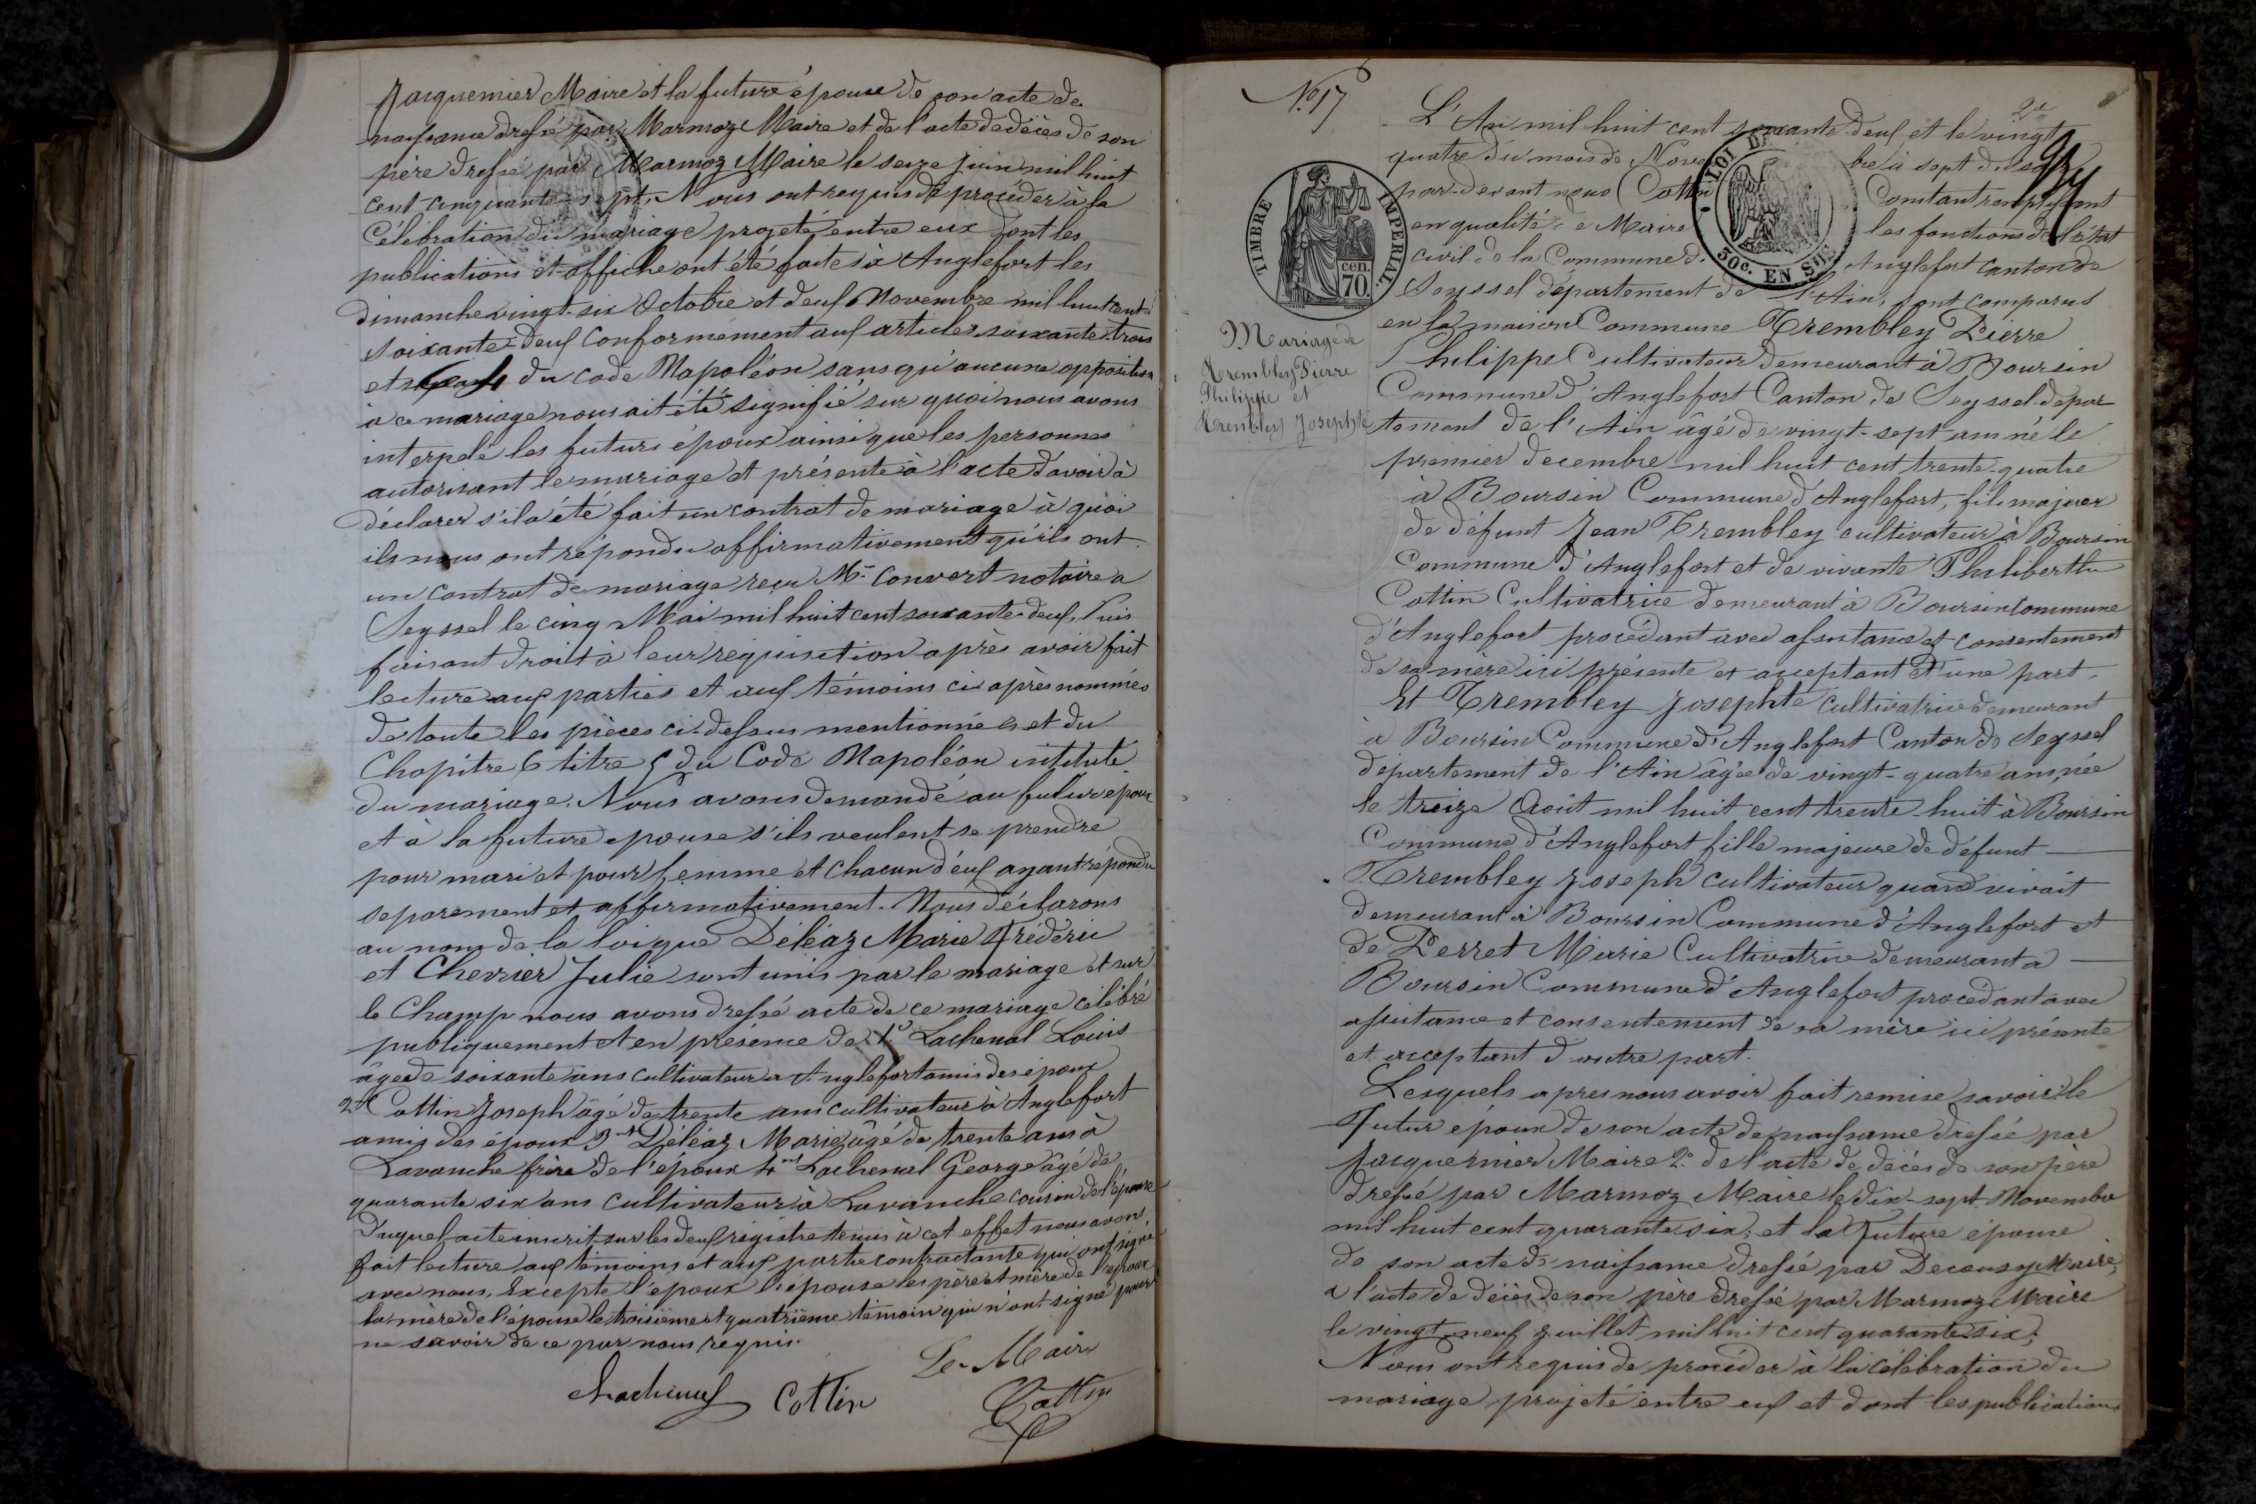 Jacquemier Maire et la future épouse de son acte de
naissance dressé par Marmoz Maire et de l'acte de décès de son
père dressé par Marmoz Maire le seize juin mil huit
cent cinquante-sept. Nous ont requis de procéder à la
Célébration du mariage projeté entre eux dont les
publications et affiche ont été faite à Anglefort les
dimanche vingt-six Octobre et deux Novembre mil huit cent
soixante-deux conformément aux articles soixante-trois
et du code Napoléon sans qu'aucune opposition
à ce mariage nous ait été signifié sur quoi nous avons
interpelé les futurs époux ainsi que les personnes
autorisant le mariage et présente à l'acte d'avoir à
déclarer s'il a été fait un contrat de mariage à quoi
ils nous ont répondu affirmativement qu'ils ont
un contrat de mariage reçu Me Convert notaire a
Seyssel le cinq Mai mil huit cent soixante-deux, Puis
faisant droit à leur réquisition après avoir fait
lecture aux parties et aux témoins ci après nommés
de toute les pièces ci-dessus mentionnées et du
Chapitre 6 titre 5 du Code Napoléon intitulé
du mariage. Nous avons demandé au futur époux
et à la future epouse s'ils veulent se prendre
pour mari et pour femme et chacun d'eux ayant répondu
séparement et affirmativement. Nous déclarons
au nom de la loi que Déléaz Marie Fréderic
et Chevrier Julie sont unis par le mariage et sur
le Champ nous avons dressé acte de ce mariage célébré
publiquement et en présence de 1° Lachenal Louis
âgé de soixante ans cultivateur a Anglefort amis des époux
2d Cottin Joseph âgé de trente ans cultivateur à Anglefort
amis des époux 3me Déléaz Marie âgé de trente ans à
Lavanche frère de l'époux 4me Lachenal George âgé de
quarante six ans cultivateur à Lavanche cousin de l'épouse
Duquel acte inscrit sur les deux régistre tenus à cet effet nous avons
fait lecture aux témoins et aux partie contractante qui ont signé
avec nous, Excepté l'époux l'épouse les père et mère de l'époux
la mère de l'épouse le troisième et quatrième témoin qui n'ont signé pour
ne savoir de ce par nous requis.
Le Maire
Lachenal Cottin Cottin
N° 17
2d
TIMBRE IMPERIAL
cen. 70
LOI DE
30c. EN SUS
Mariage de
Trembley Pierre
Philippe et
Trembley Josephte
L'An mil huit cent soixante-deux et le vingt
quatre du mois de Novembre à sept du soir
par-devant nous Cottin Constant remplissant
en qualité de Maire les fonctions de l'état
civil de la Commune d'Anglefort canton de
Seyssel département de l'Ain, sont comparus
en la maison Commune Trembley Pierre
Philippe Cultivateur demeurant à Boursin
Commune d'Anglefort Canton de Seyssel depar
tement de l'Ain âgé de vingt-sept ans né le
premier decembre mil huit cent trente-quatre
à Boursin Commune d'Anglefort, fils majeur
de défunt Jean Trembley cultivateur à Boursin
Commune d'Anglefort et de vivante Philiberthe
Cottin Cultivatrice demeurant à Boursin Commune
d'Anglefort procédant avec assistance et consentement
de sa mère ici présente et acceptant d'une part.
Et Trembley Josephte Cultivatrice demeurant
à Boursin Commune d'Anglefort Canton de Seyssel
département de l'Ain âgée de vingt-quatre ans, née
le treize Août mil huit cent trente-huit à Boursin
Commune d'Anglefort fille majeure de défunt
Trembley Joseph cultivateur quand vivait
demeurant à Boursin Commune d'Anglefort et
de Perret Marie Cultivatrice demeurant a
Boursin Commune d'Anglefort procédant avec
assistance et consentement de sa mère ici présente
et acceptant d'outre part.
Lesquels apres nous avoir fait remise savoir: le
Futur époux de son acte de naissance dressée par
Jacquemier Maire 2° de l'acte de décès de son père
dressé par Marmoz Maire le dix-sept Novembre
mil huit cent quarante six; et la Future épouse
de son acte de naissance dressée par Decousy Maire,
a l'acte de décès de son père dressé par Marmoz Maire
le vingt-neuf Juillet mil huit cent quarante six;
Nous ont requis de procéder à la célébration du
mariage projeté entre eux et dont les publications